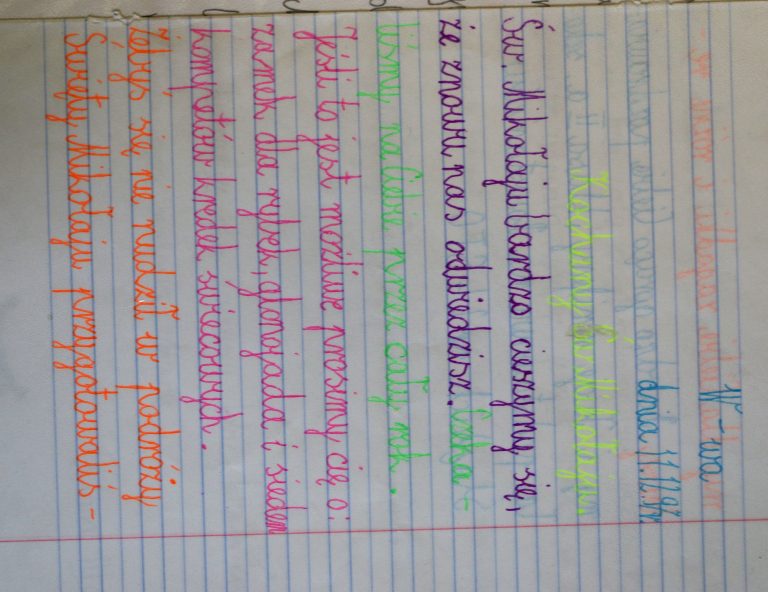 W-wa
dnia 11.12.
Kochany Św. Mikołaju.
Św. Mikołaju bardzo cieszymy się,
że znowu nas odwiedzisz. Czeka-
liśmy na Ciebie przez cały rok.
Jeśli to jest możliwe prosimy cię o:
zamek dla rybek, glonojada i siedem
kompletów kredek świecowych.
Żebyś się nie nudził w podróży
Święty Mikołaju przygotowaliś-